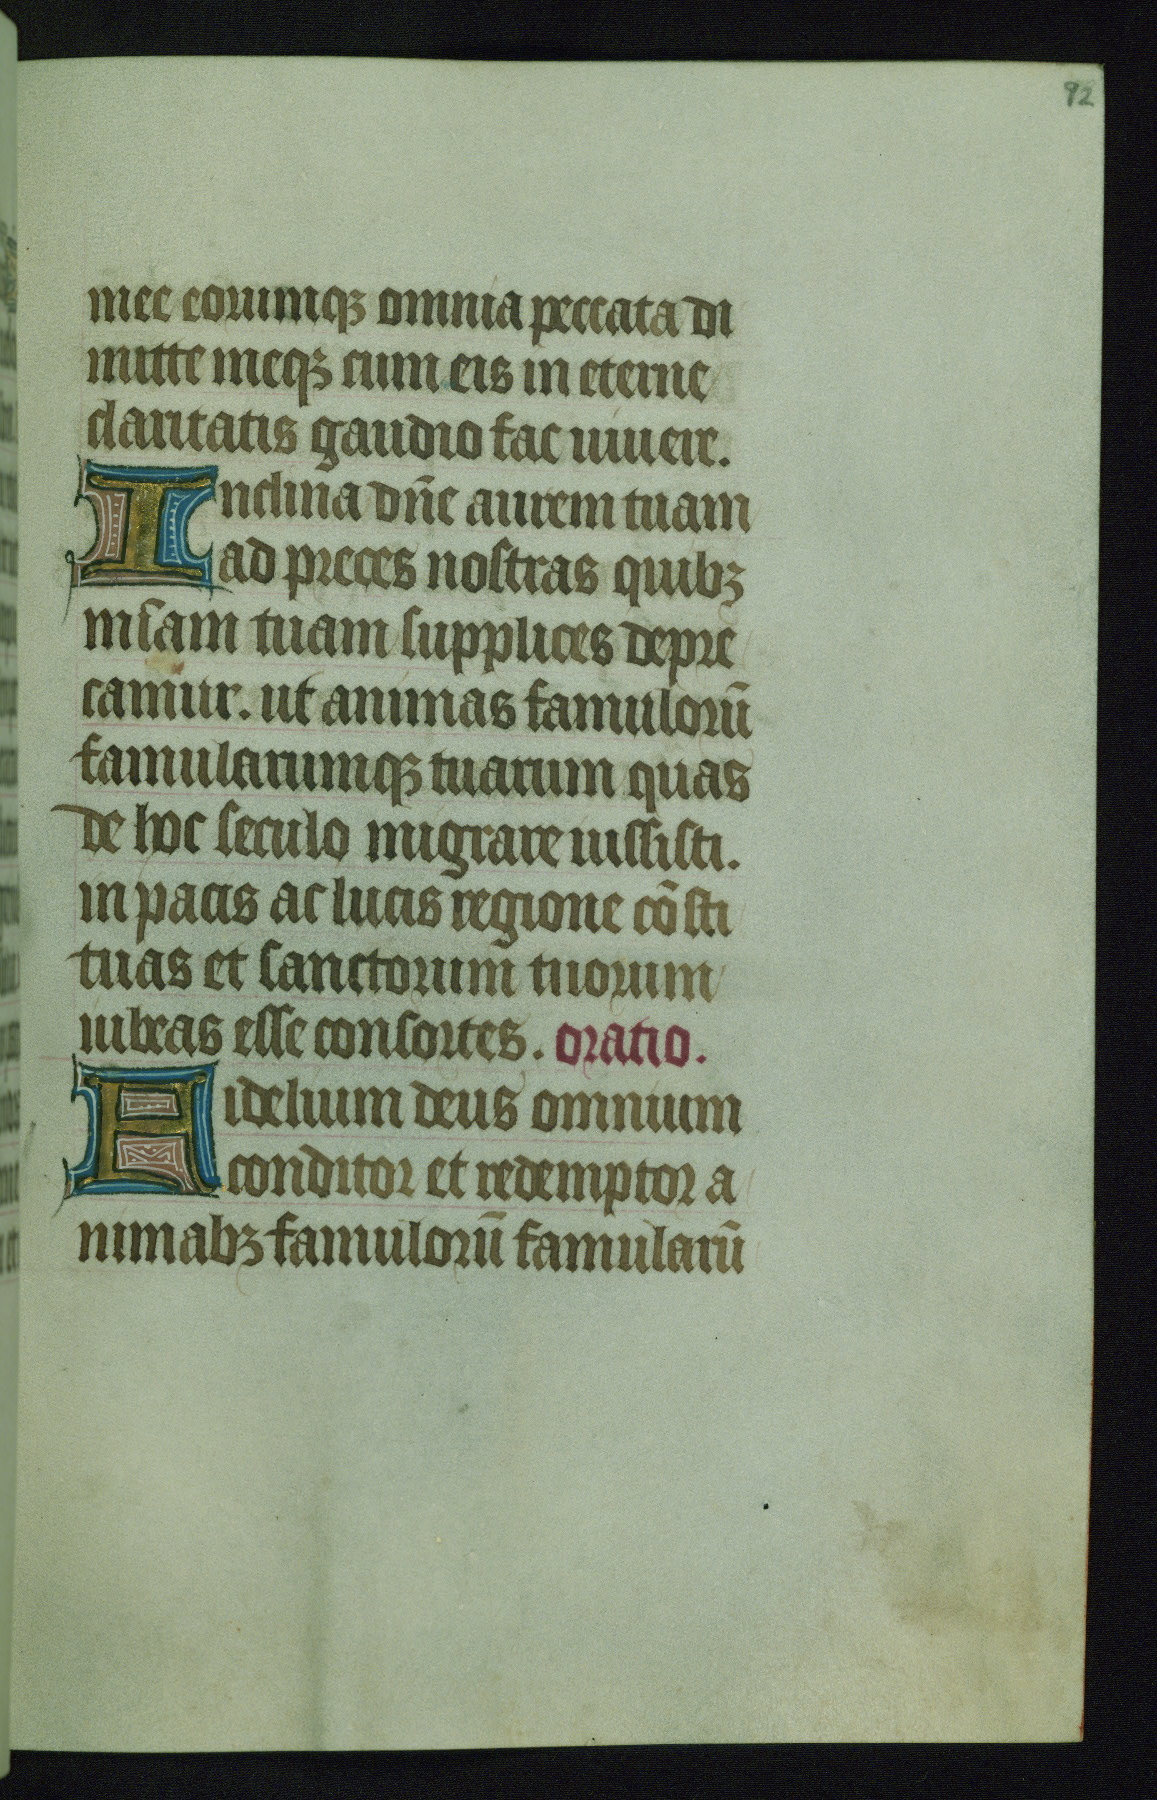 92
mee eorumqꝫ omnia peccata di
mitte meqꝫ cum eis in eterne
claritatis gaudio fac uiuere.
Inclina dñe aurem tuam
ad preces nostras quibꝫ
mĩam tuam supplices depre
camur. ut animas famulorũ
famularumqꝫ tuarum quas
de hoc seculo migrare iussisti.
in pacis ac lucis regione cõsti
tuas et sanctorum tuorum
iubeas esse consortes. oratio.
Fidelium deus omnium
conditor et redemptor a
nimabꝫ famulorũ famularũ